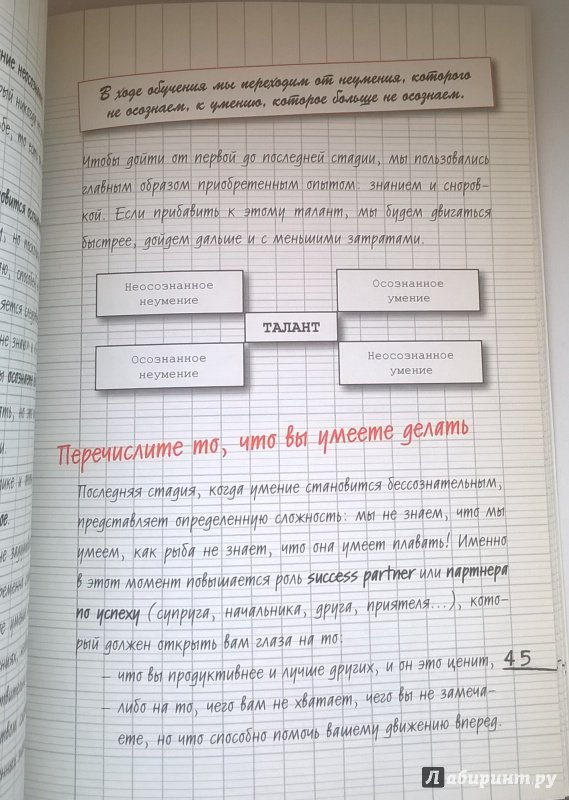 ние неосозна
В ходе обучения мы переходим от неумения, которого
не осознаем, к умению, которое больше не осознаем.
Чтобы дойти от первой до последней стадии, мы пользовались
главным образом приобретенным опытом: знанием и сноров-
кой. Если прибавить к этому талант, мы будем двигаться
быстрее, дойдем дальше и с меньшими затратами.
Неосознанное
неумение
Осознанное
умение
ТАЛАНТ
Осознанное
неумение
Неосознанное
умение
Перечислите то, что вы умеете делать
Последняя стадия, когда умение становится бессознательным,
представляет определенную сложность: мы не знаем, что мы
умеем, как рыба не знает, что она умеет плавать! Именно
в этот момент повышается роль success partner или партнера
по успеху (супруга, начальника, друга, приятеля...), кото-
рый должен открыть вам глаза на то:
– что вы продуктивнее и лучше других, и он это ценит,
– либо на то, чего вам не хватает, чего вы не замеча-
ете, но что способно помочь вашему движению вперед.
45
Лабиринт.ру